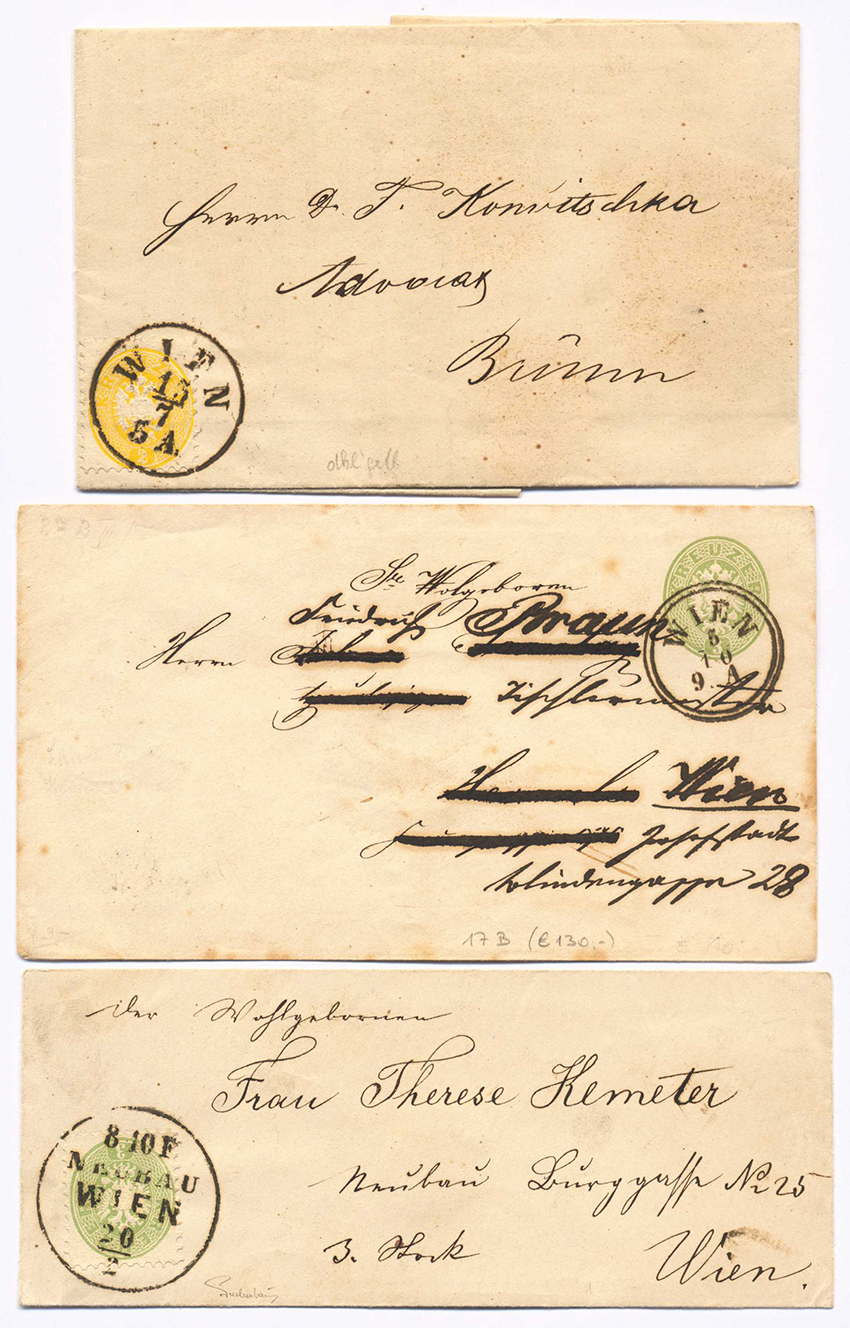 Herrn Dr. F. Konvitschka
Advocat
Brünn
WIEN
13
7
5 A.
dkl'gelb
Sr. Wolgeboren
Friedrich Braun
Herrn
Tischlermeister
Wien
Josefstadt
Lindengasse 28
WIEN
5
10
9 A
17 B (€ 130,-)
der Wohlgebornen
Frau Therese Kemeter
Neubau Burggasse No 25
3. Stock
Wien.
8-10 F
NEUBAU
WIEN
20
2